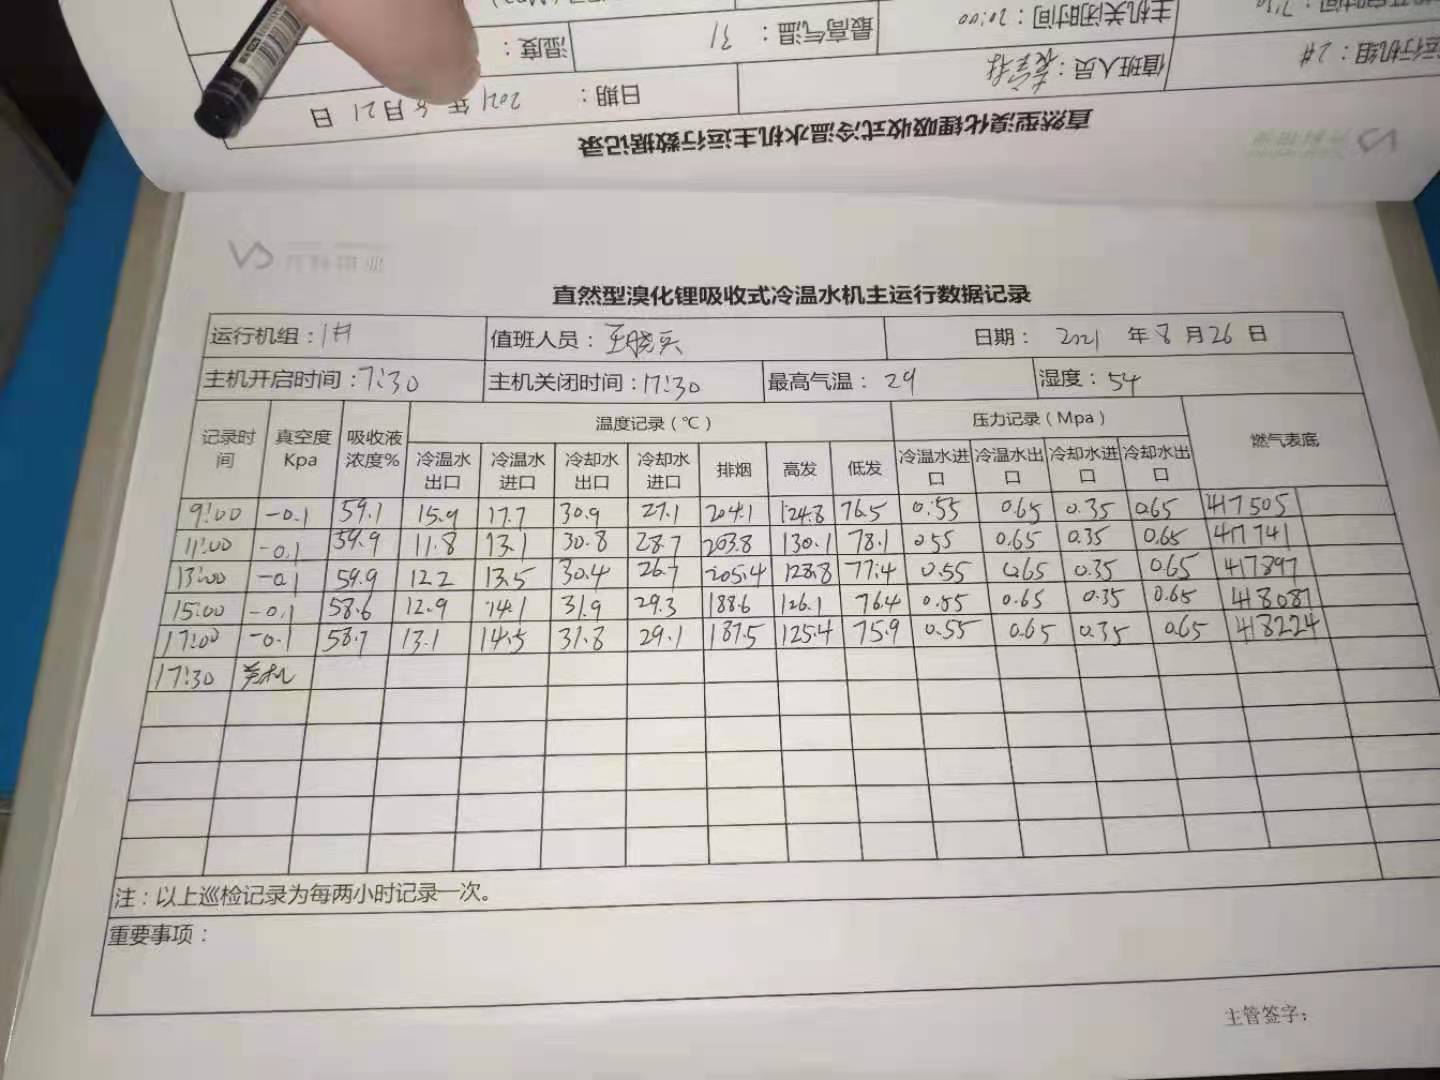 主机关闭时间：20:00
湿度：
最高气温：31
运行机组：2#
值班人员：
日期：2021年8月21日
直然型溴化锂吸收式冷温水机主运行数据记录
直然型溴化锂吸收式冷温水机主运行数据记录
运行机组：1# 值班人员：王晓兵 日期：2021年8月26日
主机开启时间：7:30 主机关闭时间：17:30 最高气温：29 湿度：54
记录时间 真空度Kpa 吸收液浓度% 温度记录（℃） 压力记录（Mpa） 燃气表底
冷温水出口 冷温水进口 冷却水出口 冷却水进口 排烟 高发 低发 冷温水进口 冷温水出口 冷却水进口 冷却水出口
9:00 -0.1 59.1 15.9 17.7 30.9 27.1 204.1 124.8 76.5 0.55 0.65 0.35 0.65 417505
11:00 -0.1 59.9 11.8 13.1 30.8 28.7 203.8 130.1 78.1 0.55 0.65 0.35 0.65 417741
13:00 -0.1 59.9 12.2 13.5 30.4 26.7 205.4 128.8 77.4 0.55 0.65 0.35 0.65 417897
15:00 -0.1 58.6 12.9 14.1 31.9 29.3 188.6 126.1 76.4 0.55 0.65 0.35 0.65 418081
17:00 -0.1 58.7 13.1 14.5 31.8 29.1 187.5 125.4 75.9 0.55 0.65 0.35 0.65 418224
17:30 关机
注：以上巡检记录为每两小时记录一次。
重要事项：
主管签字：